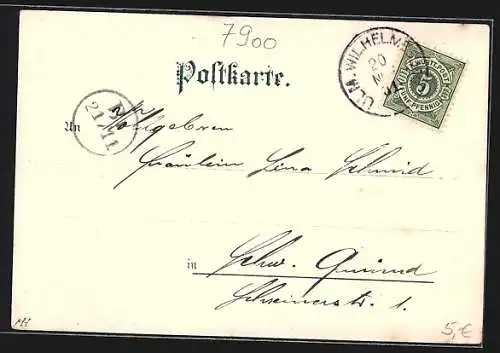 7900
Postkarte.
ULM. WILHELMS
20
K. WÜRTT. POST
5
FÜNF PFENNIG
21 11
An
Wohlgeboren
Fräulein Lina Schmid
in Schw. Gmünd
Schreinerstr. 1.
5,€